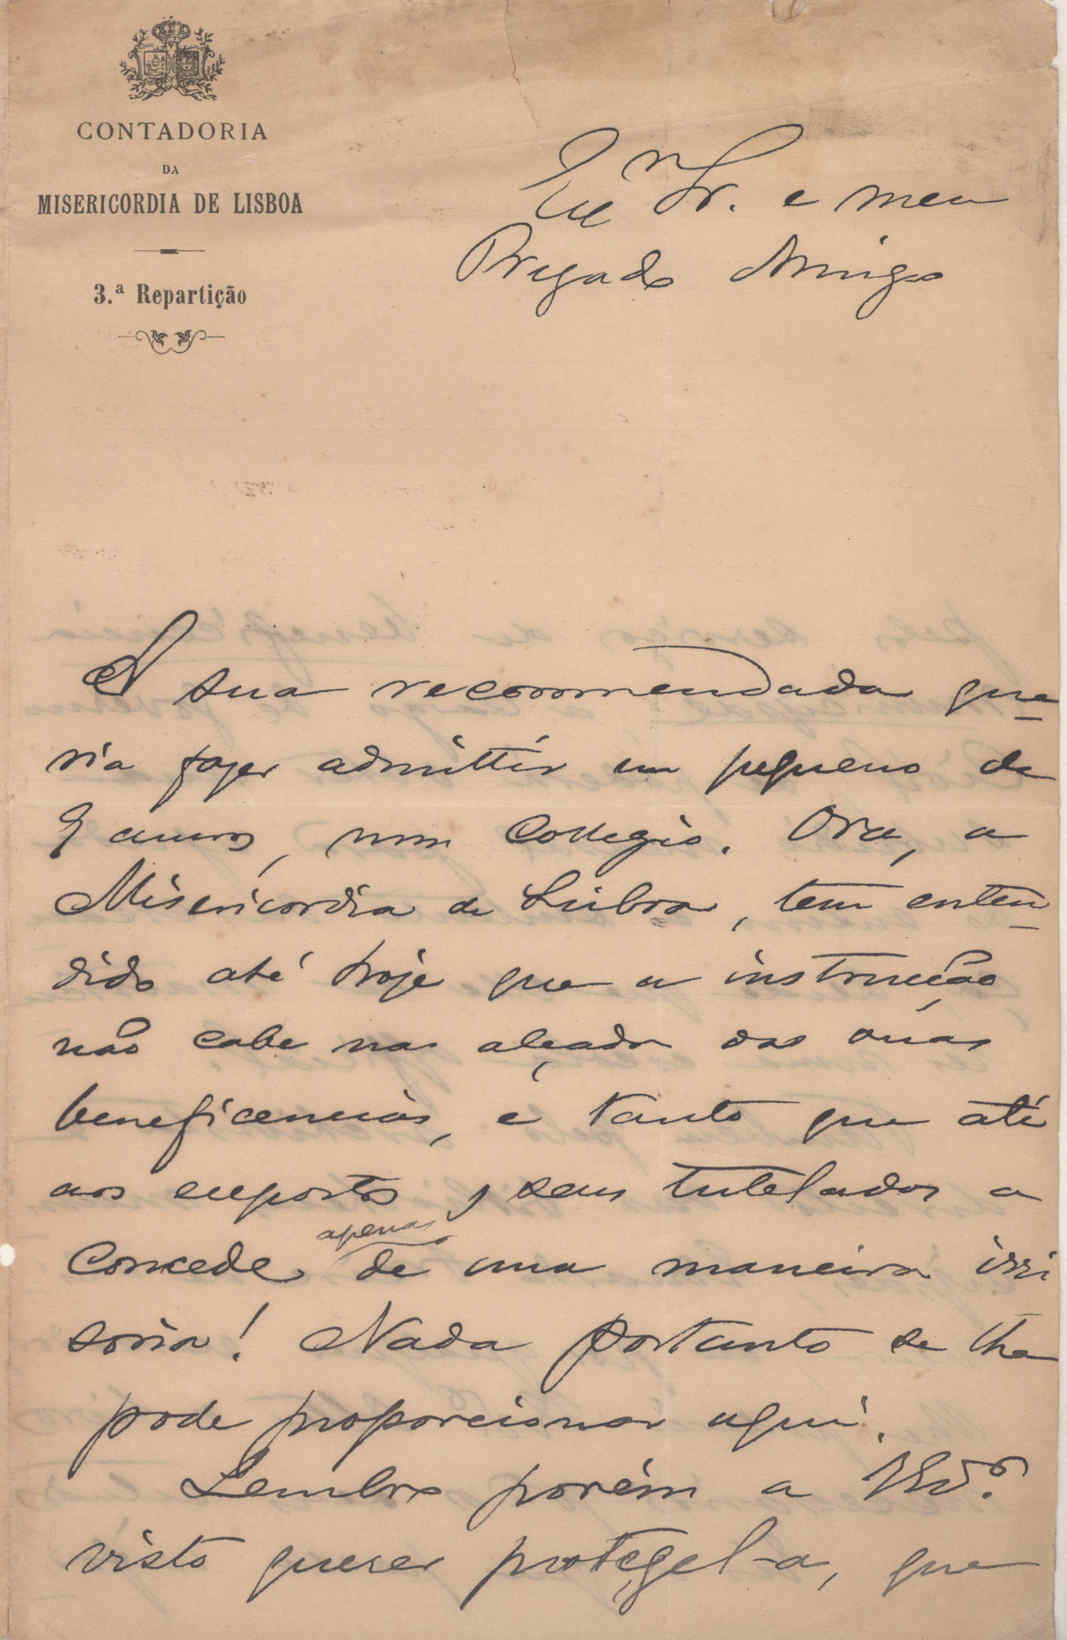 CONTADORIA
DA
MISERICORDIA DE LISBOA
3.ª Repartição
Exmº Sr. e meu
Presado Amigo
A sua recommendada que-
ria fazer admittir um pequeno de
9 annos, num Collegio. Ora, a
Misericordia de Lisboa, tem enten-
dido até hoje que a instrucção
não cabe na alçada das suas
beneficencias, e tanto que até
aos expostos, seus tutelados a
concede apenas de uma maneira irri
soria! Nada portanto se lhe
pode proporcionar aqui.
Lembro porém a
visto querer protegel-a, que